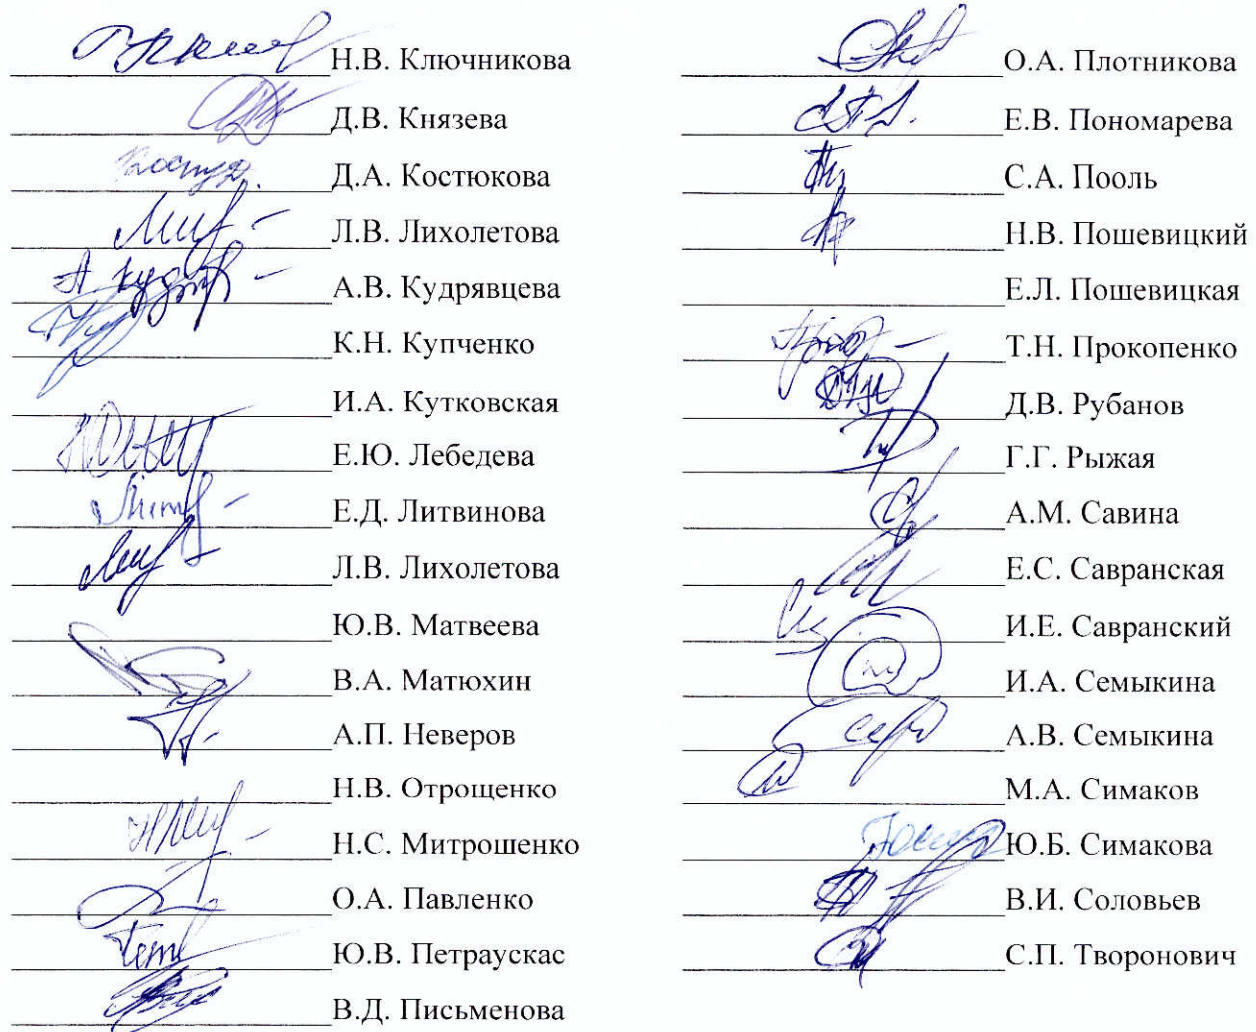 Н.В. Ключникова
Д.В. Князева
Д.А. Костюкова
Л.В. Лихолетова
А.В. Кудрявцева
К.Н. Купченко
И.А. Кутковская
Е.Ю. Лебедева
Е.Д. Литвинова
Л.В. Лихолетова
Ю.В. Матвеева
В.А. Матюхин
А.П. Неверов
Н.В. Отрощенко
Н.С. Митрошенко
О.А. Павленко
Ю.В. Петраускас
В.Д. Письменова
О.А. Плотникова
Е.В. Пономарева
С.А. Пооль
Н.В. Пошевицкий
Е.Л. Пошевицкая
Т.Н. Прокопенко
Д.В. Рубанов
Г.Г. Рыжая
А.М. Савина
Е.С. Савранская
И.Е. Савранский
И.А. Семыкина
А.В. Семыкина
М.А. Симаков
Ю.Б. Симакова
В.И. Соловьев
С.П. Творонович